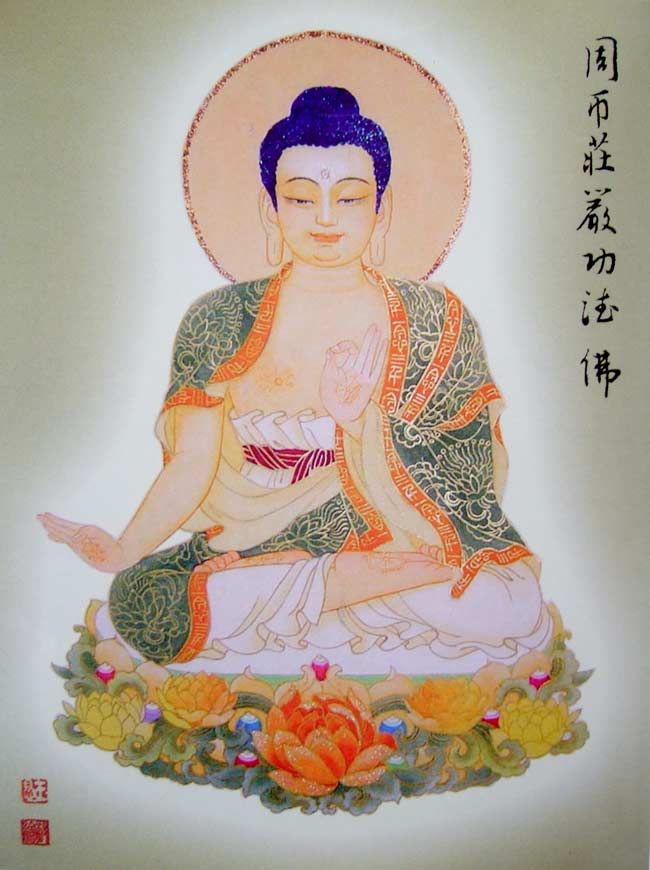 周帀莊嚴功德佛